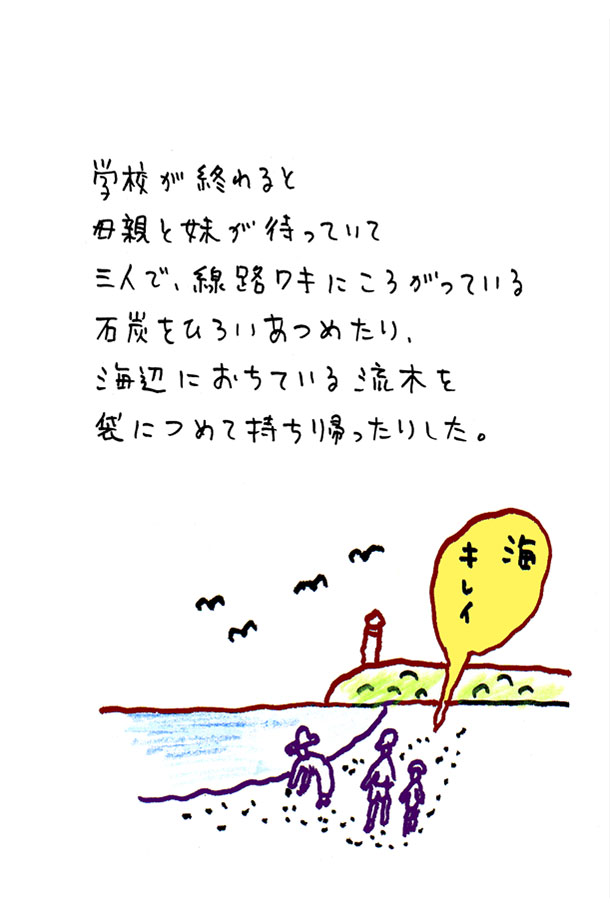 学校が終れると
母親と妹が待っていて
三人で、線路ワキにころがっている
石炭をひろいあつめたり、
海辺におちている流木を
袋につめて持ち帰ったりした。
海
キレイ